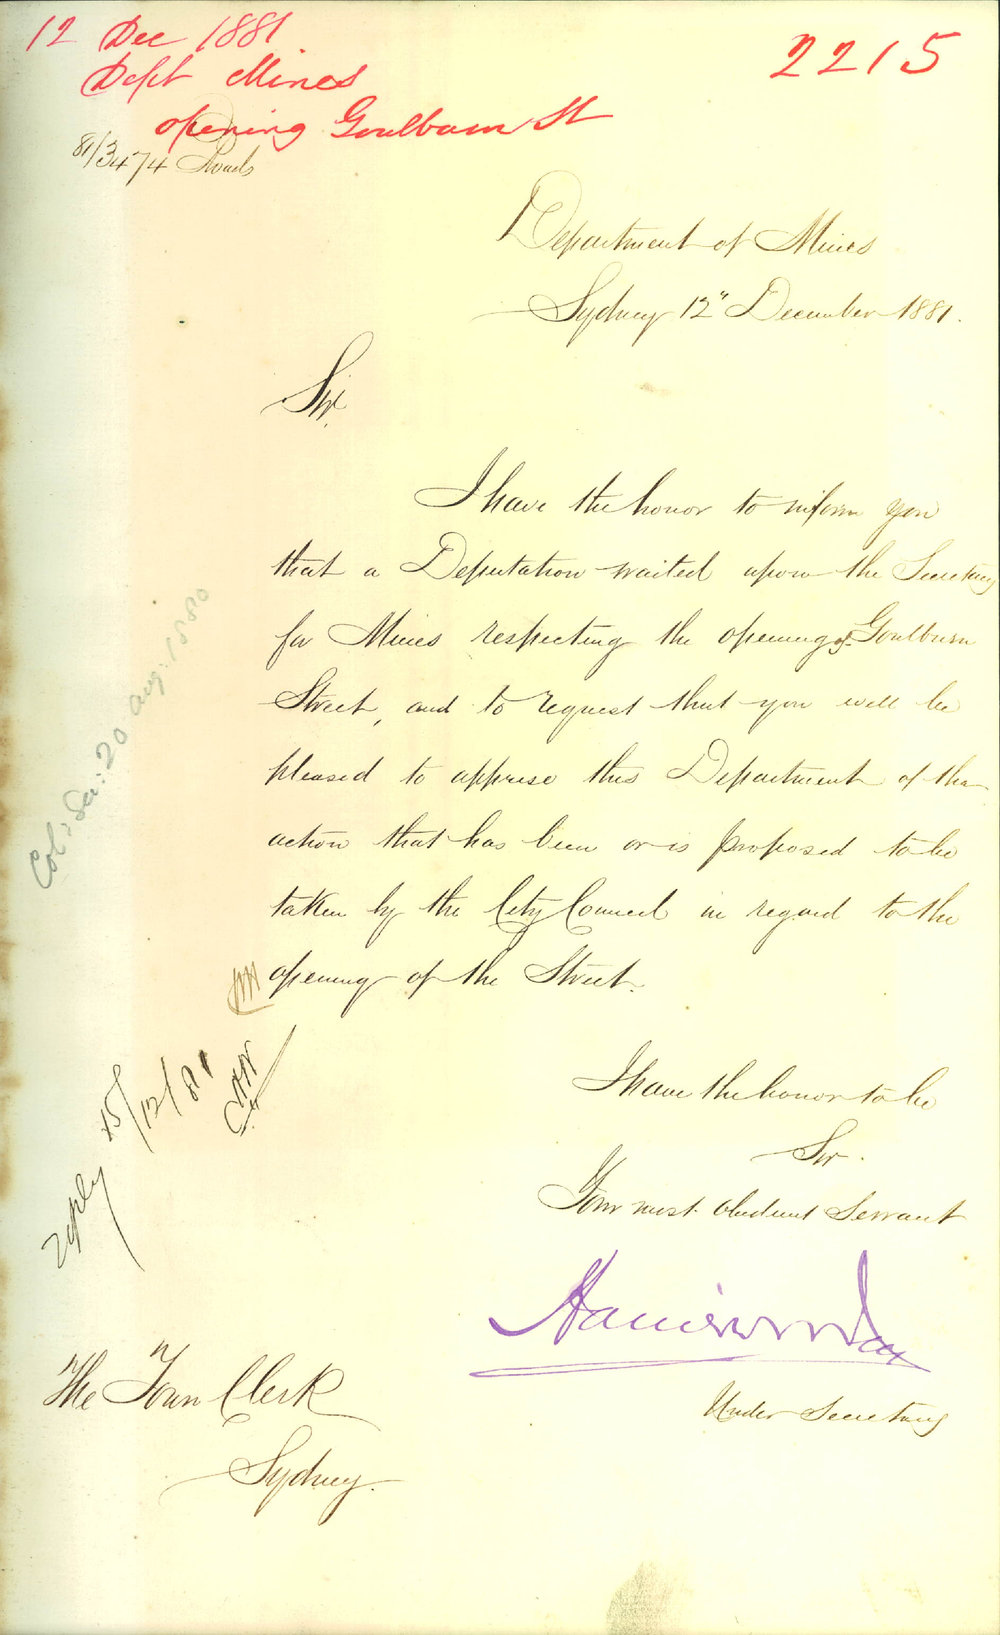 12 Dec 1881
Dept Mines
opening Goulburn St
2215
81/3474 Roads
Department of Mines
Sydney 12" December 1881.
Sir,
I have the honor to inform you
that a Deputation waited upon the Secretary
for Mines respecting the opening of Goulburn
Street, and to request that you will be
pleased to apprise this Department of the
action that has been or is proposed to be
taken by the City Council in regard to the
opening of the Street.
Col: Sec: 20 Aug: 1880
reply 15/12/81
I have the honor to be
Sir.
Your most obedient Servant
Under Secretary
The Town Clerk
Sydney.